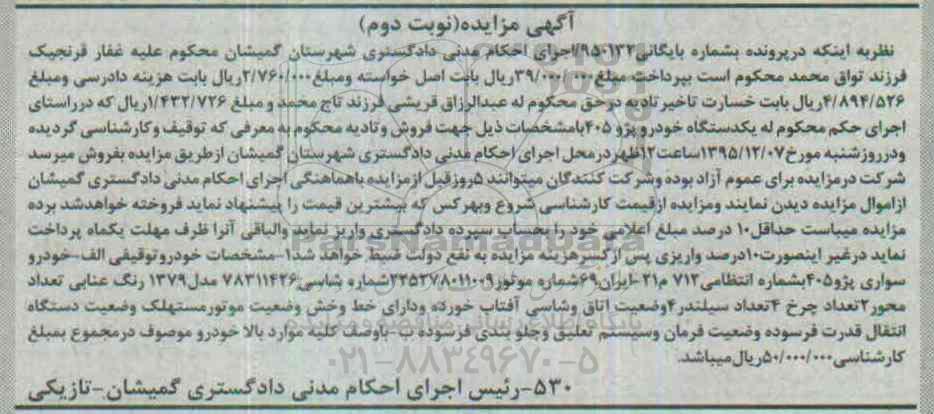 آگهی مزایده(نوبت دوم)
نظربه اینکه درپرونده بشماره بایگانی۹۵۰۱۳۲/اجرای احکام مدنی دادگستری شهرستان گمیشان محکوم علیه غفار قرنجیک
فرزند تواق محمد محکوم است بپرداخت مبلغ۳۹/۰۰۰/۰۰۰ریال بابت اصل خواسته ومبلغ۲/۷۶۰/۰۰۰ریال بابت هزینه دادرسی ومبلغ
۴/۸۹۴/۵۲۶ریال بابت خسارت تاخیر تادیه درحق محکوم له عبدالرزاق قریشی فرزند تاج محمد و مبلغ ۱/۴۳۲/۷۲۶ریال که درراستای
اجرای حکم محکوم له یکدستگاه خودرو پژو ۴۰۵بامشخصات ذیل جهت فروش وتادیه محکوم به معرفی که توقیف وکارشناسی گردیده
ودرروزشنبه مورخ۱۳۹۵/۱۲/۰۷ساعت۱۲ظهر درمحل اجرای احکام مدنی دادگستری شهرستان گمیشان ازطریق مزایده بفروش میرسد
شرکت درمزایده برای عموم آزاد بوده وشرکت کنندگان میتوانند ۵روزقبل ازمزایده باهماهنگی اجرای احکام مدنی دادگستری گمیشان
ازاموال مزایده دیدن نمایند ومزایده ازقیمت کارشناسی شروع وبهرکس که بیشترین قیمت را پیشنهاد نماید فروخته خواهدشد برده
مزایده میباست حداقل۱۰ درصد مبلغ اعلامی خود را بحساب سپرده دادگستری واریز نماید والباقی آنرا ظرف مهلت یکماه پرداخت
نماید درغیر اینصورت۱۰درصد واریزی پس ازکسرهزینه مزایده به نفع دولت ضبط خواهد شد۱-مشخصات خودروتوقیفی الف-خودرو
سواری پژو۴۰۵بشماره انتظامی۷۱۲ م۲۱-ایران۶۹شماره موتور۲۲۵۲۷۸۰۱۱۰۰۹شماره شاسی۷۸۳۱۱۴۲۶ مدل۱۳۷۹ رنگ عنابی تعداد
محور۲تعداد چرخ ۴تعداد سیلندر۴وضعیت اتاق وشاسی آفتاب خورده ودارای خط وخش وضعیت موتورمستهلک وضعیت دستگاه
انتقال قدرت فرسوده وضعیت فرمان وسیستم تعلیق وجلو بندی فرسوده ب-باوصف کلیه موارد بالا خودرو موصوف درمجموع بمبلغ
کارشناسی۵۰/۰۰۰/۰۰۰ریال میباشد.
۵۳۰-رئیس اجرای احکام مدنی دادگستری گمیشان-تازیکی
ParsNamadData
۰۲۱-۸۸۳۴۹۶۷۰-۵